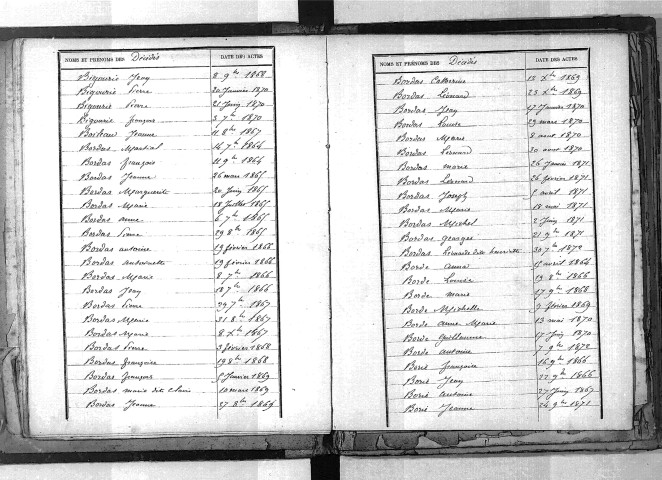 NOMS ET PRÉNOMS DES Décédés DATE DES ACTES
Bigourie Jean 8 9bre 1868
Bigourie Pierre 20 Janvier 1870
Bigourie Pierre 21 Juin 1870
Bigourie françois 3 7bre 1870
Jeanne 11 8bre 1867
Bordas Martial 16 7bre 1864
Bordas françois 11 9bre 1864
Bordas Jeanne 26 mars 1865
Bordas Marguerite 20 Juin 1865
Bordas Marie 18 Juillet 1865
Bordas anne 6 7bre 1865
Bordas Pierre 29 8bre 1865
Bordas antoine 19 février 1866
Bordas antoinette 19 février 1866
Bordas Marie 8 7bre 1866
Bordas Jean 18 7bre 1866
Bordas Pierre 29 7bre 1867
Bordas Marie 31 8bre 1867
Bordas Marie 8 Xbre 1867
Bordas Pierre 3 février 1868
Bordas françoise 19 8bre 1868
Bordas françois Janvier 1869
Bordas marie dite Claire 10 mars 1869
Bordas Jeanne 27 8bre 1869
NOMS ET PRÉNOMS DES Décédés DATE DES ACTES
Bordas Catherine 18 Xbre 1869
Bordas Léonard 23 Xbre 1869
Bordas Jean 17 Janvier 1870
Bordas Louise 29 mars 1870
Bordas Marie 8 aout 1870
Bordas Léonard 30 aout 1870
Bordas marie 26 Janvier 1871
Bordas Léonard 26 février 1871
Bordas Joseph 5 avril 1871
Bordas Marie 18 mai 1871
Bordas Michel 2 Juin 1871
Bordas Georges 21 9bre 1871
Bordas Léonarde dite henriette 30 7bre 1872
Borde anna 5 avril 1864
Borde Louise 19 8bre 1866
Borde marie 17 9bre 1868
Borde Michelle 9 février 1869
Borde anne Marie 13 mai 1870
Borde Guillaume 17 Juin 1870
Borde antoine 7 9bre 1872
Borie françoise 16 9bre 1866
Borie Jean 22 9bre 1866
Borie antoine 27 Juin 1867
Borie Jeanne 24 9bre 1871